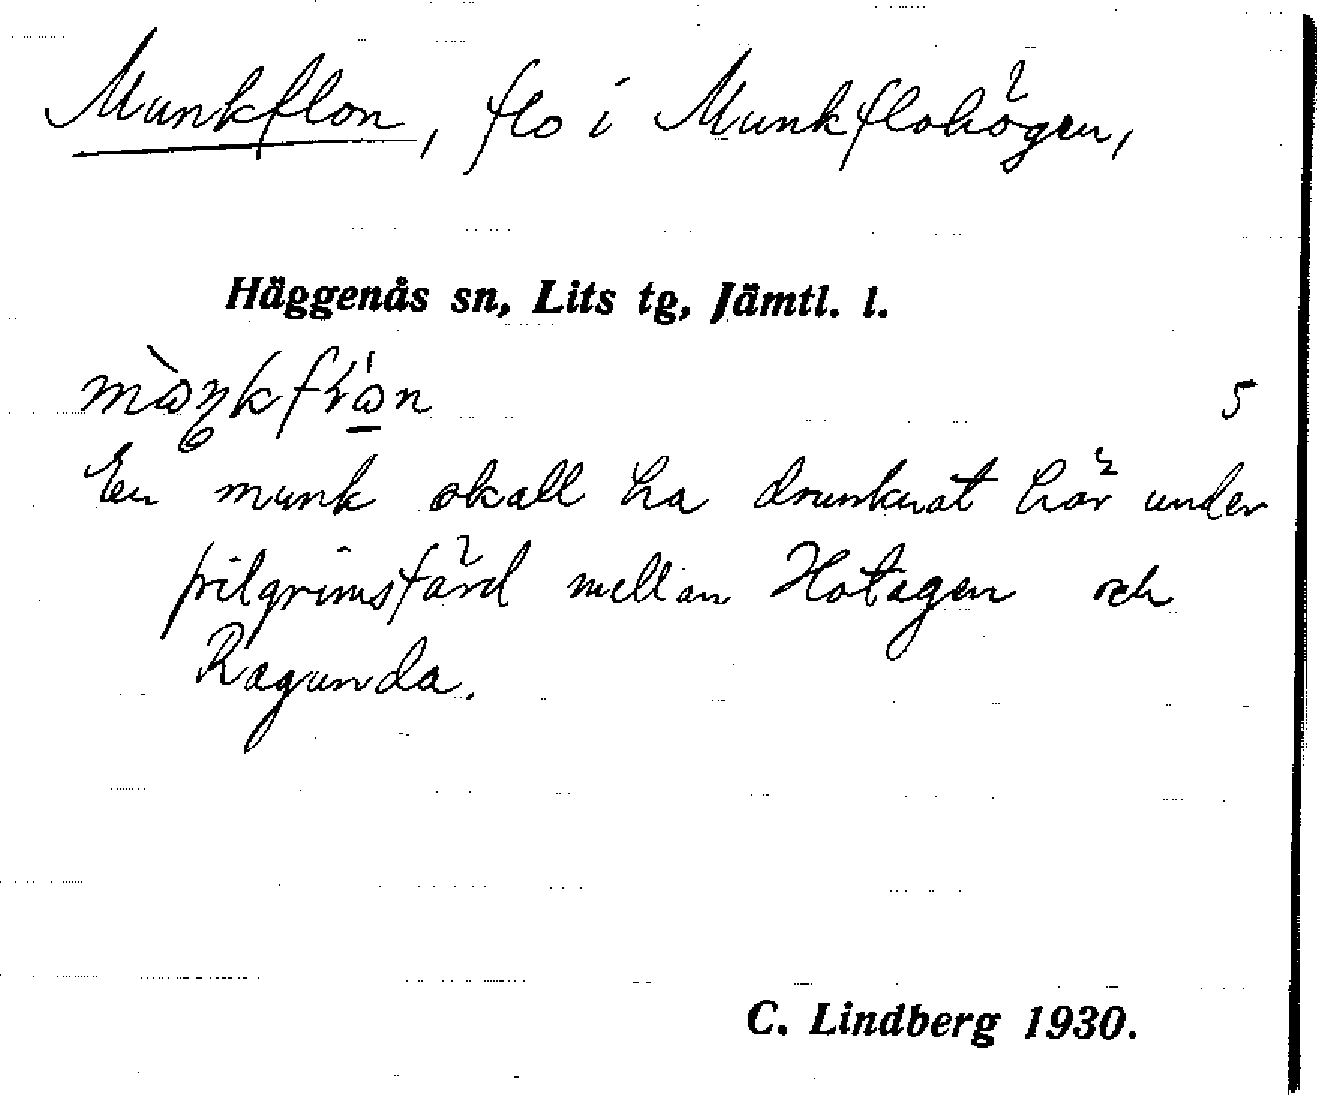 Munkflon, flo i Munkflohögen,
Häggenås sn, Lits tg, Jämtl. l.
5
En munk skall ha drunknat här under
pilgrimsfärd mellan Hotagen och
Ragunda.
C. Lindberg 1930.